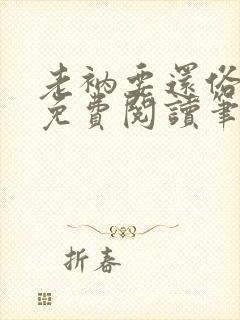 老衲要還俗
免費閱讀筆
折春